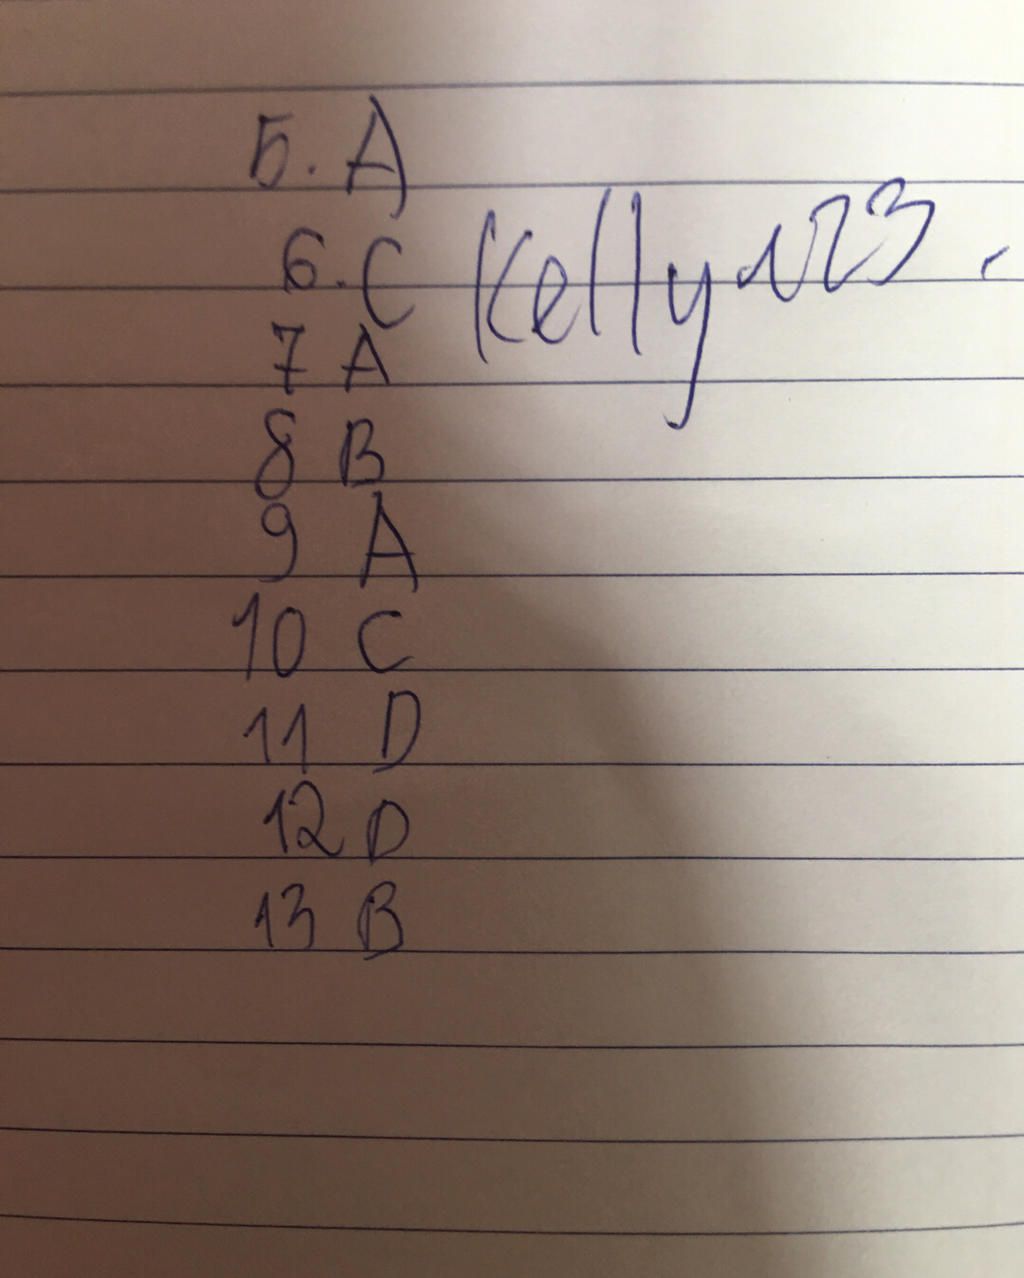 5. A
6. C Kelly123.
7 A
8 B
9 A
10 C
11 D
12 D
13 B